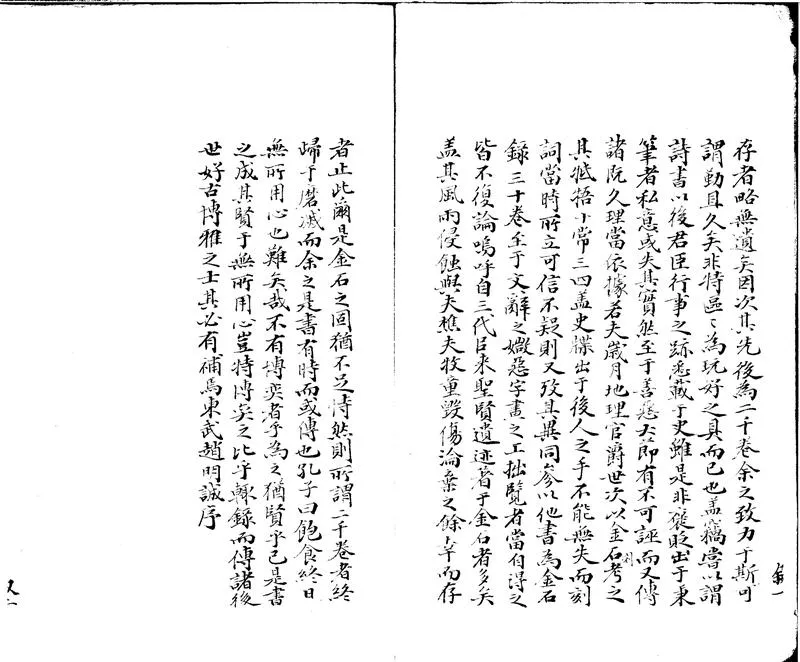 存者略無遺矣因次其先後為二千卷余之致力于斯可
謂勤且久矣非特區〻為玩好之具而已也盖竊嘗以謂
詩書以後君臣行事之跡悉載于史雖是非褒貶出于秉
筆者私意或失其實然至于善惡大節有不可誣而又傳
諸既久理當依據若夫歲月地理官爵世次以金石考之
其牴牾十常三四盖史牒出于後人之手不能無失而刻
詞當時所立可信不疑則又攷其異同參以他書為金石
錄三十卷至于文辭之媺惡字畫之工拙覽者當自得之
皆不復論嗚呼自三代以来聖賢遺迹著于金石者多矣
盖其風雨侵蝕與夫樵夫牧童毀傷淪棄之餘幸而存
者止此爾是金石之固猶不足恃然則所謂二千卷者終
歸于磨滅而余之是書有時而或傳也孔子曰飽食終日
無所用心也難矣哉不有博奕者乎為之猶賢乎已是書
之成其賢于無所用心豈特博奕之比乎輒錄而傳諸後
世好古博雅之士其必有補焉東武趙明誠序